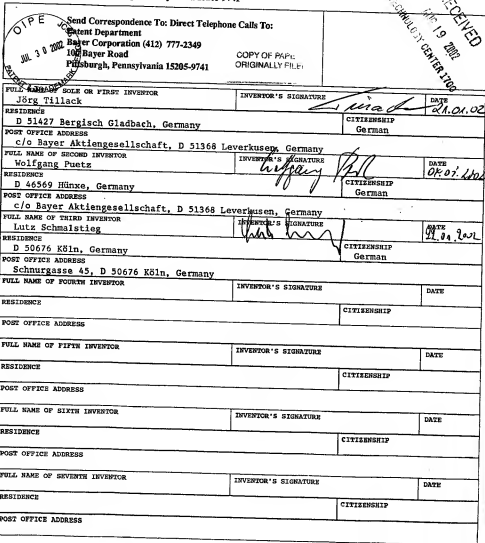 Send Correspondence To: Direct Telephone Calls To:
Patent Department
Bayer Corporation (412) 777-2349
100 Bayer Road
Pittsburgh, Pennsylvania 15205-9741
OIPE
JUL 30 2002
COPY OF PAPERS
ORIGINALLY FILED
RECEIVED
AUG 19 2002
TECHNOLOGY CENTER 1700
FULL NAME OF SOLE OR FIRST INVENTOR INVENTOR'S SIGNATURE DATE
Jörg Tillack 21.01.02
RESIDENCE CITIZENSHIP
D 51427 Bergisch Gladbach, Germany German
POST OFFICE ADDRESS
c/o Bayer Aktiengesellschaft, D 51368 Leverkusen, Germany
FULL NAME OF SECOND INVENTOR INVENTOR'S SIGNATURE DATE
Wolfgang Puetz Wolfgang
RESIDENCE CITIZENSHIP
D 46569 Hünxe, Germany German
POST OFFICE ADDRESS
c/o Bayer Aktiengesellschaft, D 51368 Leverkusen, Germany
FULL NAME OF THIRD INVENTOR INVENTOR'S SIGNATURE DATE
Lutz Schmalstieg
RESIDENCE CITIZENSHIP
D 50676 Köln, Germany German
POST OFFICE ADDRESS
Schnurgasse 45, D 50676 Köln, Germany
FULL NAME OF FOURTH INVENTOR INVENTOR'S SIGNATURE DATE
RESIDENCE CITIZENSHIP
POST OFFICE ADDRESS
FULL NAME OF FIFTH INVENTOR INVENTOR'S SIGNATURE DATE
RESIDENCE CITIZENSHIP
POST OFFICE ADDRESS
FULL NAME OF SIXTH INVENTOR INVENTOR'S SIGNATURE DATE
RESIDENCE CITIZENSHIP
POST OFFICE ADDRESS
FULL NAME OF SEVENTH INVENTOR INVENTOR'S SIGNATURE DATE
RESIDENCE CITIZENSHIP
POST OFFICE ADDRESS